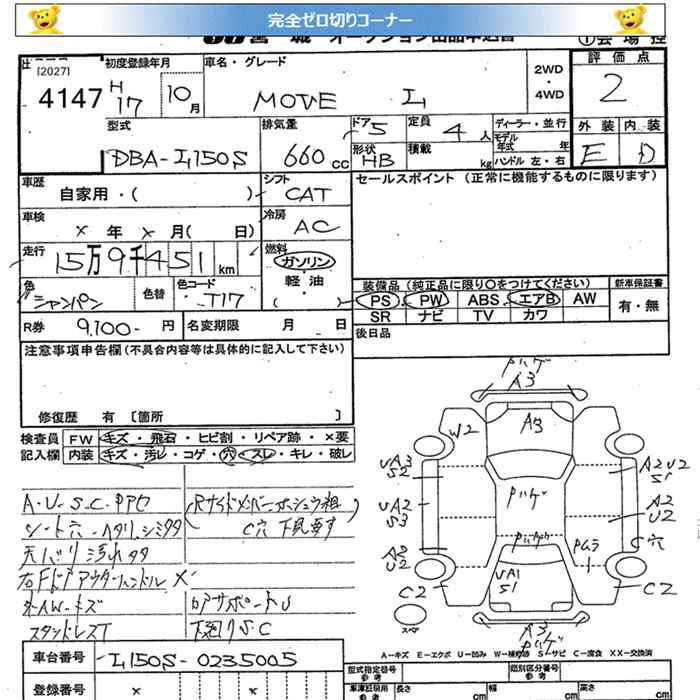 完全ゼロ切りコーナー
オークション出品申込書
[2027]
4147
初度登録年月
H17
10月
車名・グレード
MOVE L
2WD
・4WD
評価点
2
型式
DBA-L150S
排気量
660cc
ドア 5
定員 4人
形状 HB
積載 kg
ディーラー・並行
モデル年式 年
ハンドル 左・右
外装
内装
E
D
車歴
自家用・( )
シフト
CAT
セールスポイント (正常に機能するものに限ります)
車検
× 年 × 月( 日)
冷房
AC
走行
15万9千451km
燃料
ガソリン
・
軽油
( )
色
シャンパン
色替
色コード
T17
装備品 (純正品に限り○をつけてください)
PS PW ABS エアB AW
SR ナビ TV カワ
新車保証書
有・無
R券 9,100- 円
名変期限 月 日
後日品
注意事項申告欄 (不具合内容等は具体的に記入して下さい)
修復歴 有 〔箇所 〕
検査員記入欄
FW キズ・飛石・ヒビ割・リペア跡・×要
内装 キズ・汚レ・コゲ・穴・スレ・キレ・破レ
A・U・S・C・
シート穴・ヘタリ・シミ
天バリ汚れ
右Fドアアウターハンドル×
キズ
Rサイドメンバー
C穴 下見要す
ロアサポートU
下廻りS・C
Pハゲ
A3
A3
W2
UA3
S2
UA2
S3
A2
S2
C2
Pハゲ
Pハゲ
UA1
S1
A2 U2
S1
A2
U2
C穴
Pムラ
C2
A3
Pハゲ
スペア
A－キズ E－エクボ U－凹み W－補修跡 S－サビ C－腐食 XX－交換済
車台番号 L150S-0235005
登録番号 × ×
型式指定番号
参考
類別区分番号
参考
車庫証明用
参考
長さ cm
幅 cm
高さ cm